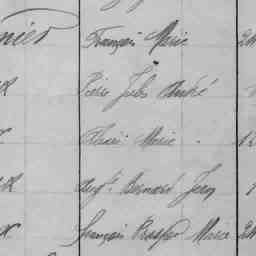 nier François Marie 24
Pierre Jules André
Henri Marie
Augte Bernard Jean
François Prosper Marie 24